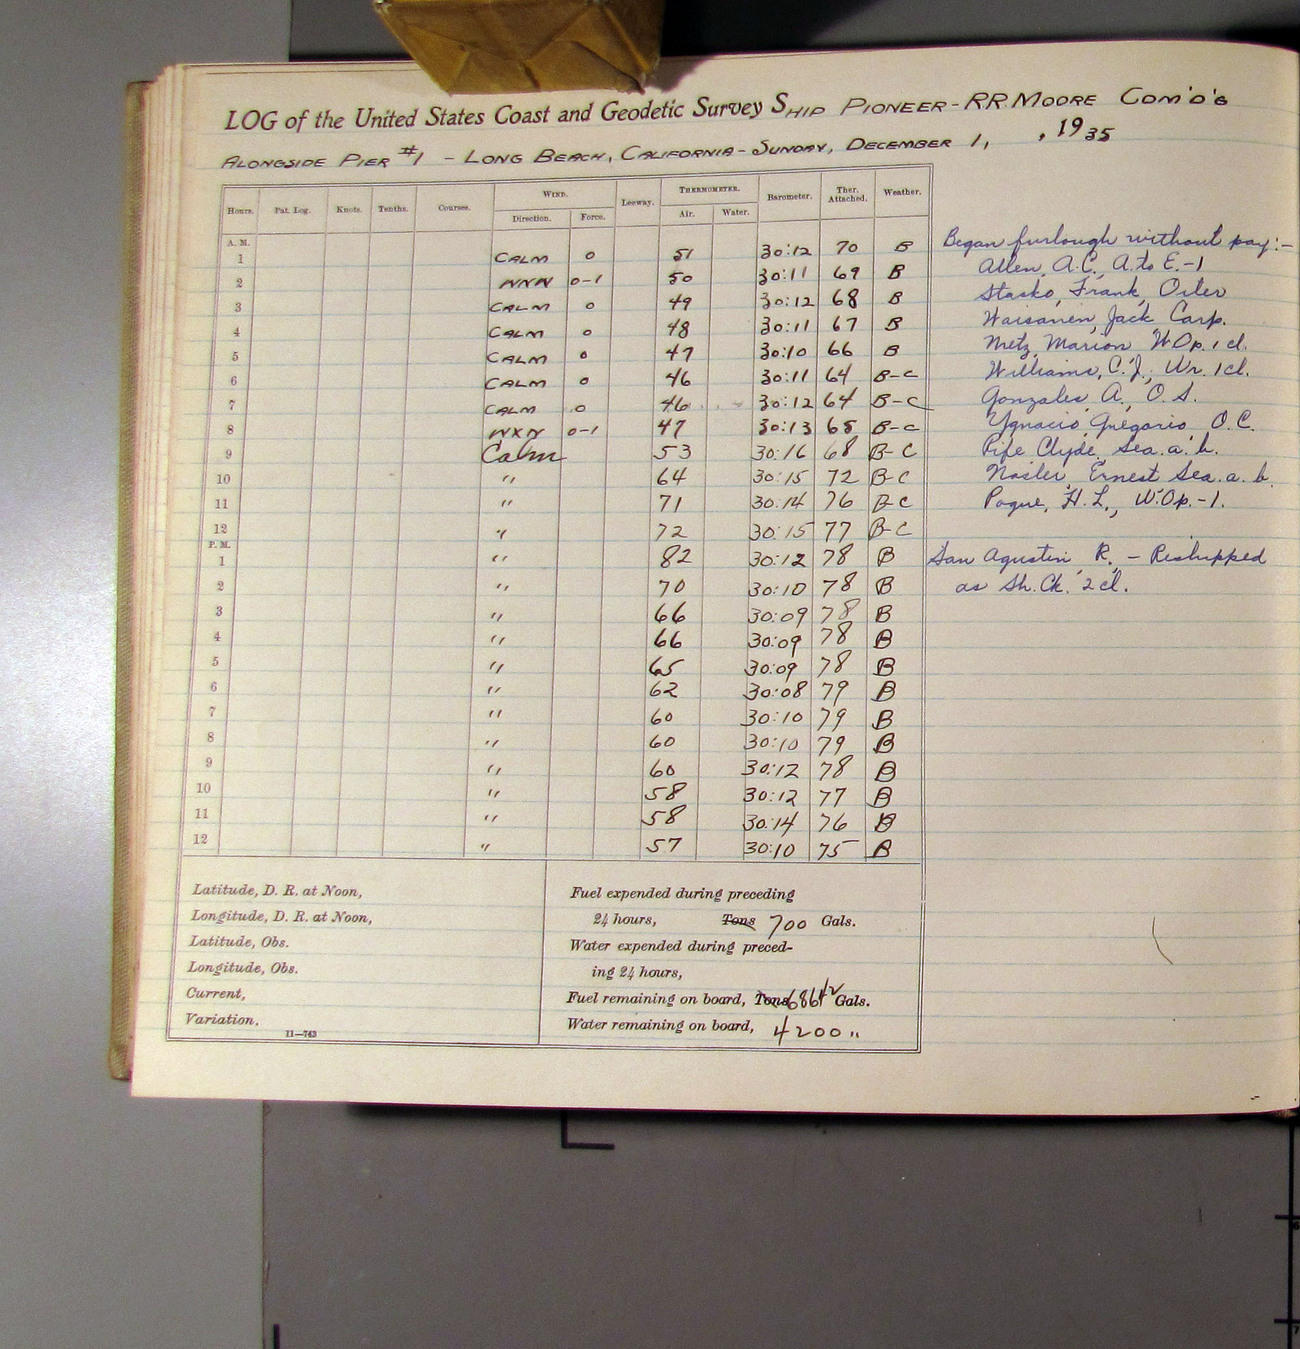 LOG of the United States Coast and Geodetic Survey SHIP PIONEER - RR MOORE COM'D'G
ALONGSIDE PIER #1 - LONG BEACH, CALIFORNIA - SUNDAY, DECEMBER 1, , 1935
Hours. Pat. Log. Knots. Tenths. Courses. WIND. Leeway. THERMOMETER. Barometer. Ther. Attached. Weather.
Direction. Force. Air. Water.
A. M.
1 CALM 0 51 30:12 70 B
2 WNW 0-1 50 30:11 69 B
3 CALM 0 49 30:12 68 B
4 CALM 0 48 30:11 67 B
5 CALM 0 47 30:10 66 B
6 CALM 0 46 30:11 64 B-C
7 CALM 0 46 30:12 64 B-C
8 WXN 0-1 47 30:13 65 B-C
9 Calm 53 30:16 68 B-C
10 " 64 30:15 72 B-C
11 " 71 30:14 76 B-C
12 " 72 30:15 77 B-C
P. M.
1 " 82 30:12 78 B
2 " 70 30:10 78 B
3 " 66 30:09 78 B
4 " 66 30:09 78 B
5 " 65 30:09 78 B
6 " 62 30:08 79 B
7 " 60 30:10 79 B
8 " 60 30:10 79 B
9 " 60 30:12 78 B
10 " 58 30:12 77 B
11 " 58 30:14 76 B
12 " 57 30:10 75 B
Began furlough without pay:-
Allen, A.C., A. to E.-1
Stasko, Frank, Oiler
Warsanen, Jack Carp.
Metz, Marion W.Op. 1 cl.
Williams, C.J., Wr. 1cl.
Gonzales, A., O.S.
Ygnacio, Gregorio O.C.
Pife, Clyde, Sea. a. b.
Nosler, Ernest Sea. a. b.
Pogue, H.L., W.Op.-1.
San Agustin, R. - Reshipped
as Sh. Ck. 2 cl.
Latitude, D. R. at Noon,
Longitude, D. R. at Noon,
Latitude, Obs.
Longitude, Obs.
Current,
Variation.
11—743
Fuel expended during preceding
24 hours, Tons 700 Gals.
Water expended during preced-
ing 24 hours,
Fuel remaining on board, Tons Gals.
Water remaining on board, 4200 "